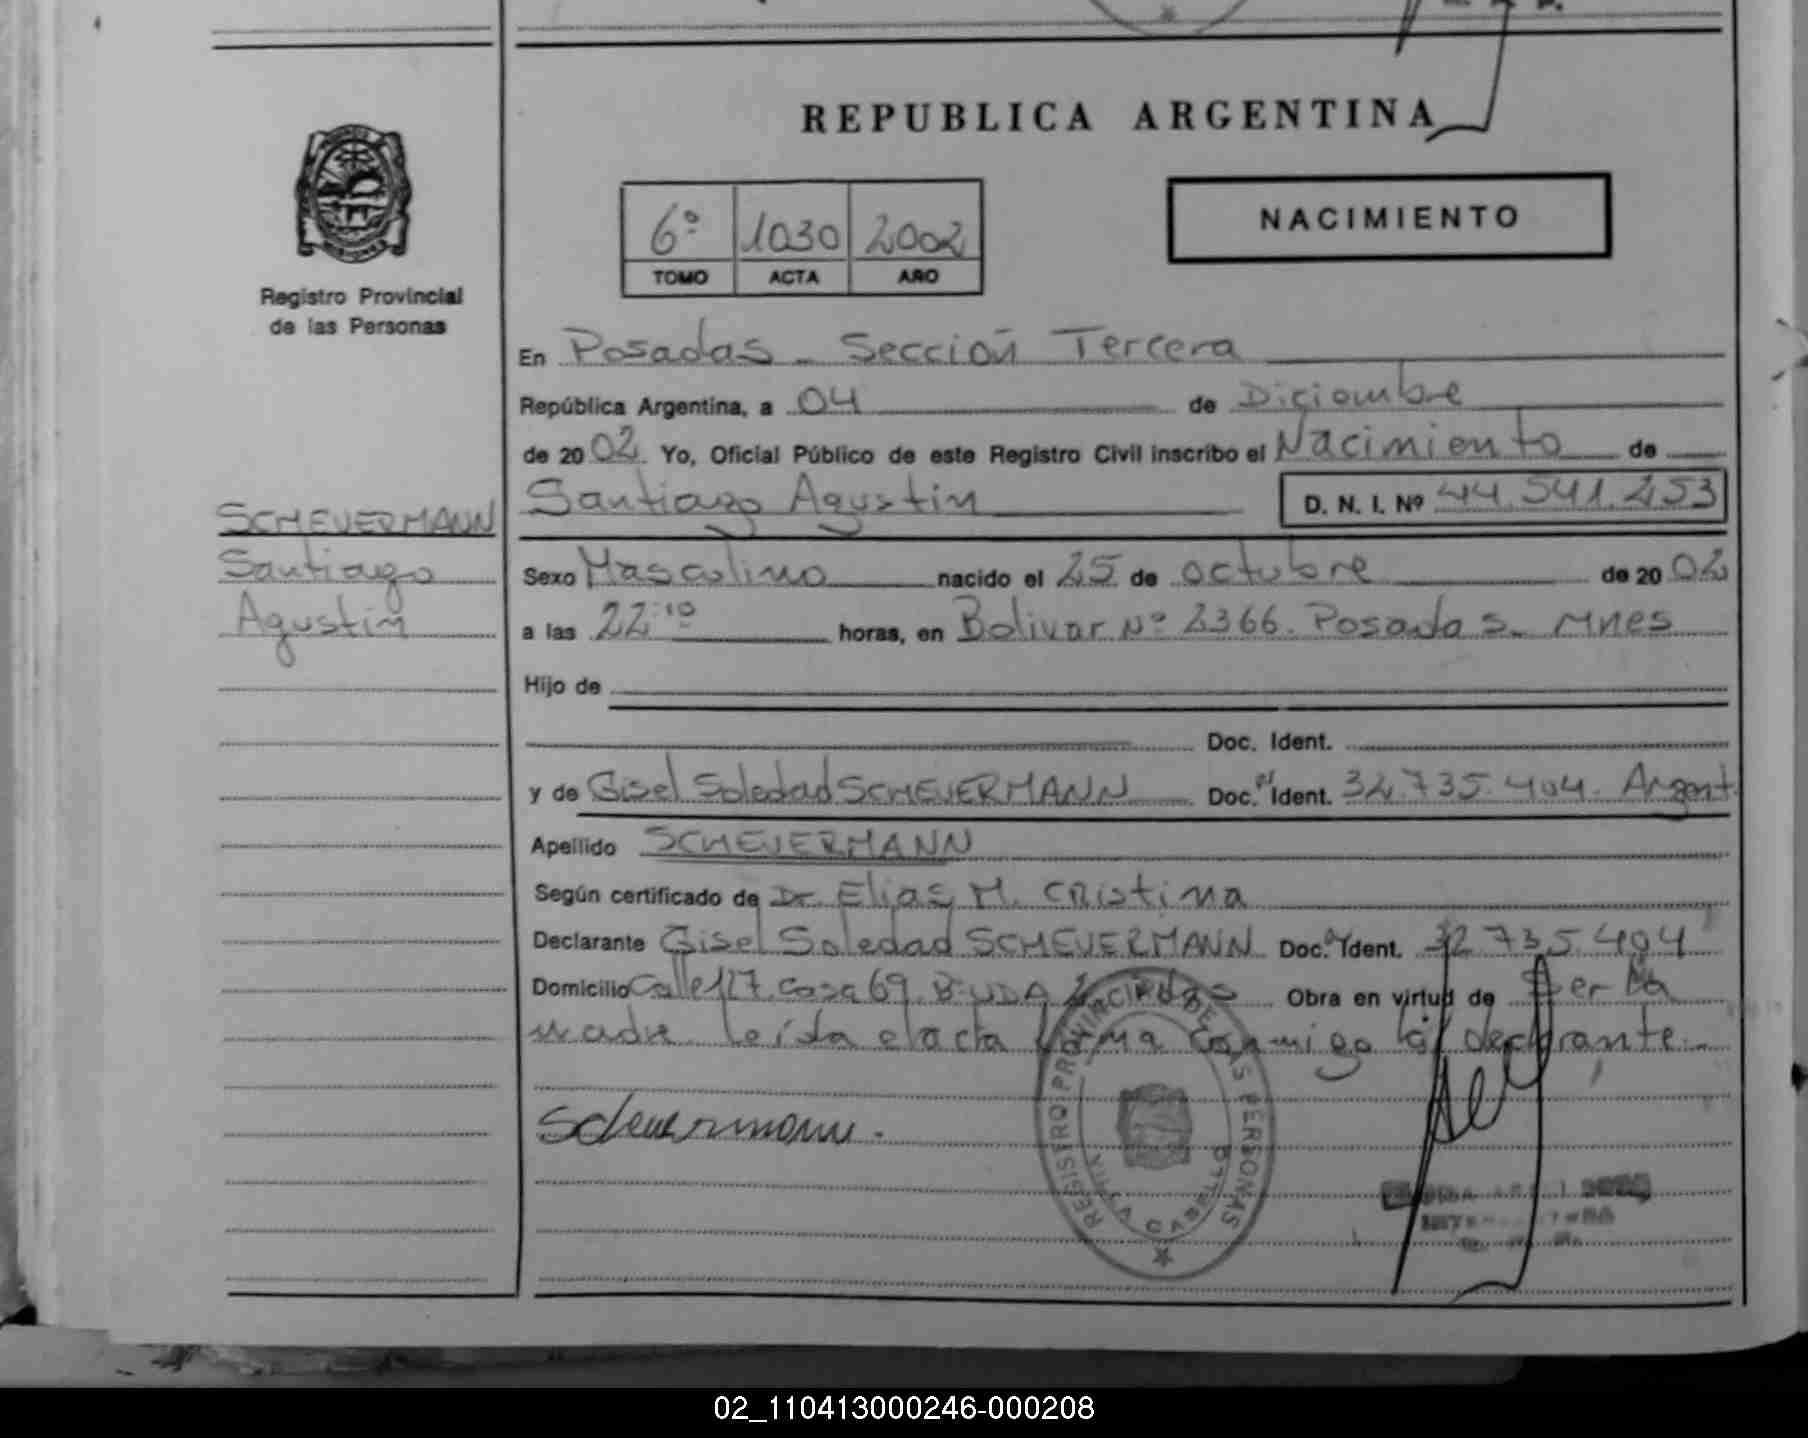 REPUBLICA ARGENTINA
NACIMIENTO
6º 1030 2002
TOMO ACTA AÑO
Registro Provincial
de las Personas
En Posadas - Sección Tercera
República Argentina, a 04 de Diciembre
de 2002 Yo, Oficial Público de este Registro Civil inscribo el Nacimiento de
Santiago Agustin D. N. I. Nº 44.541.253
SCHEUERMANN
Santiago
Agustin
Sexo Masculino nacido el 25 de octubre de 2002
a las 22:10 horas, en Bolivar Nº 2366. Posadas - Mnes
Hijo de
Doc. Ident.
y de Gisel Soledad SCHEUERMANN Doc. Ident. 32.735.404. Argent.
Apellido SCHEUERMANN
Según certificado de Dr. Elias M. Cristina
Declarante Gisel Soledad SCHEUERMANN Doc. Ident. 32.735.404
Domicilio Calle 127. Casa 69. Obra en virtud de Ser la
madre. leída el acta firma conmigo la declarante.-
Scheuermann.
REGISTRO PROVINCIAL DE LAS PERSONAS
02_110413000246-000208